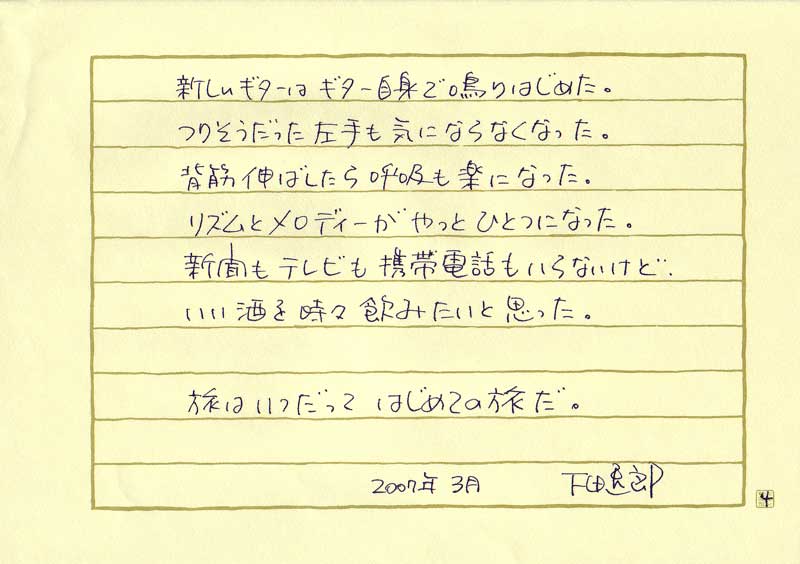 新しいギターは ギター自身で鳴りはじめた。
つりそうだった左手も気にならなくなった。
背筋伸ばしたら呼吸も楽になった。
リズムとメロディーが やっと ひとつになった。
新聞も テレビも 携帯電話も いらないけど、
いい酒を時々飲みたいと思った。
旅は いつだって はじめての旅だ。
2007年 3月 下田逸郎
4